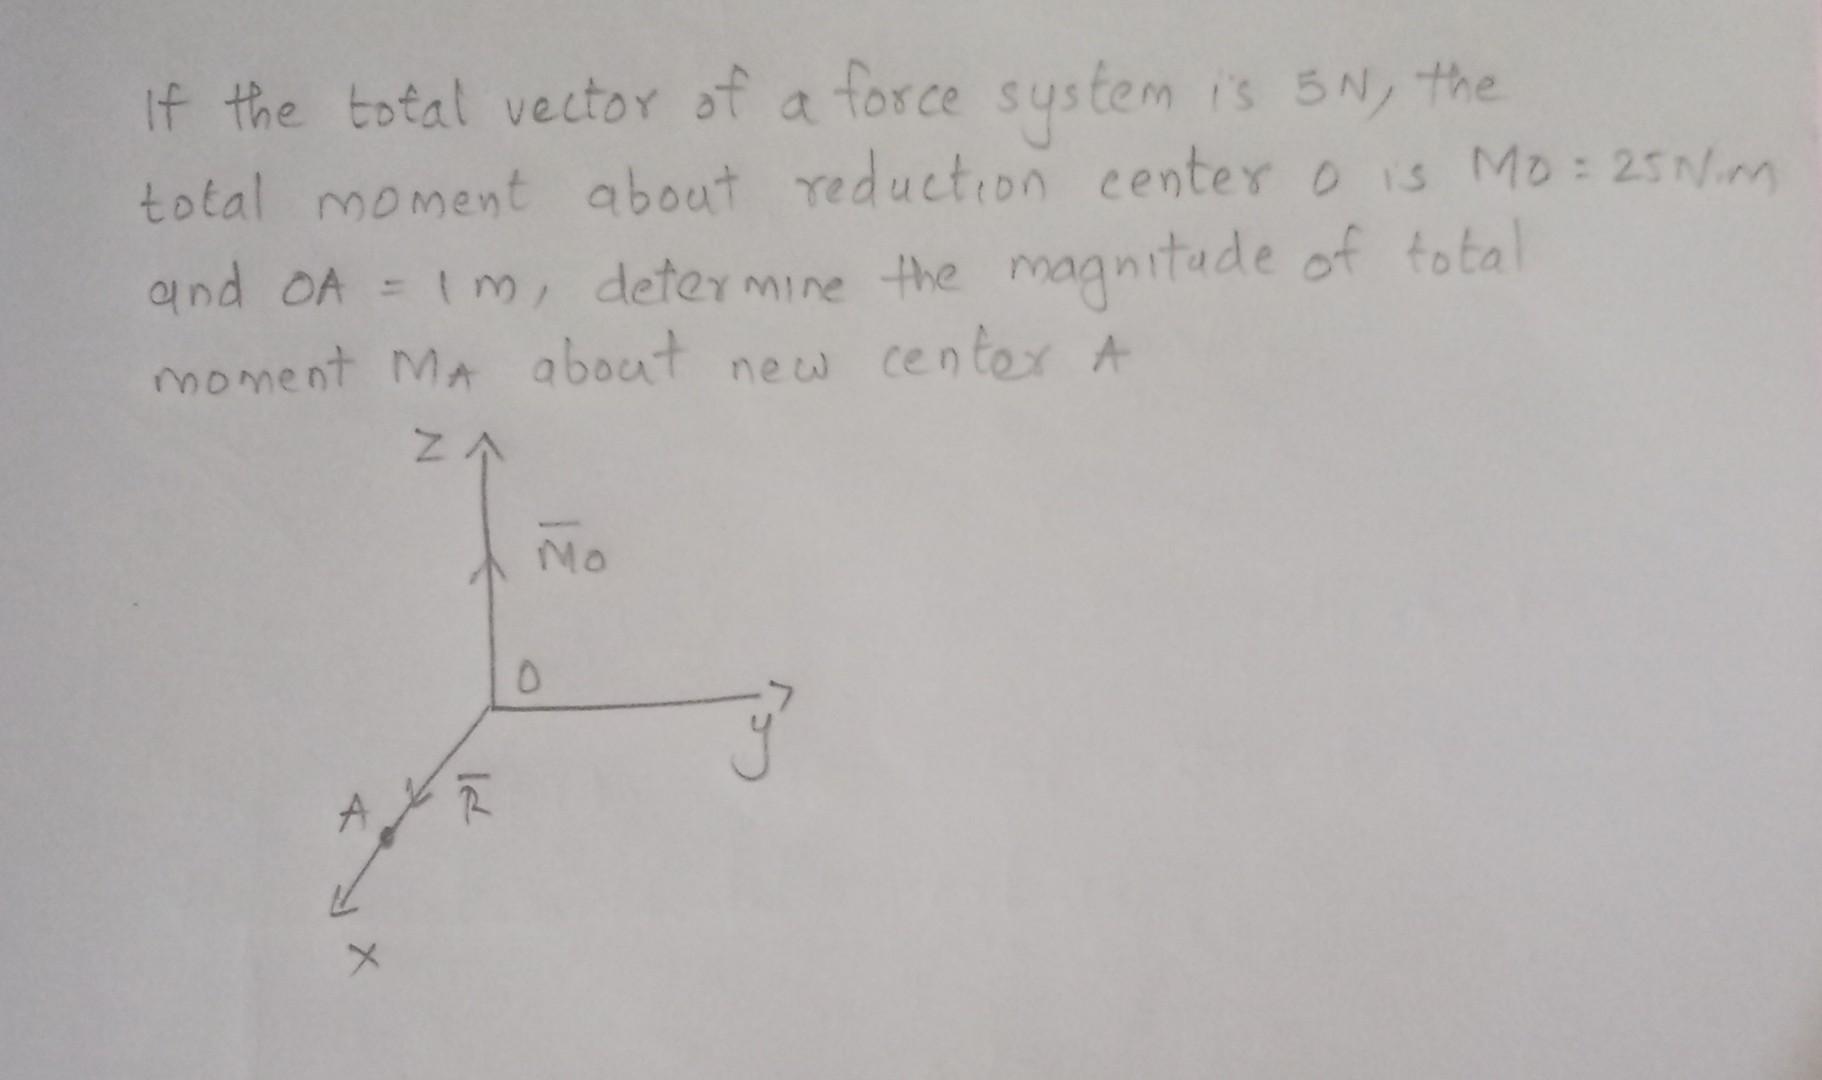 If the total vector of a force system is 5N, the
total moment about reduction center O is MO = 25 N.m
and OA = 1m, determine the magnitude of total
moment MA about new center A
Z
M̅O
O
y
A
R̅
X